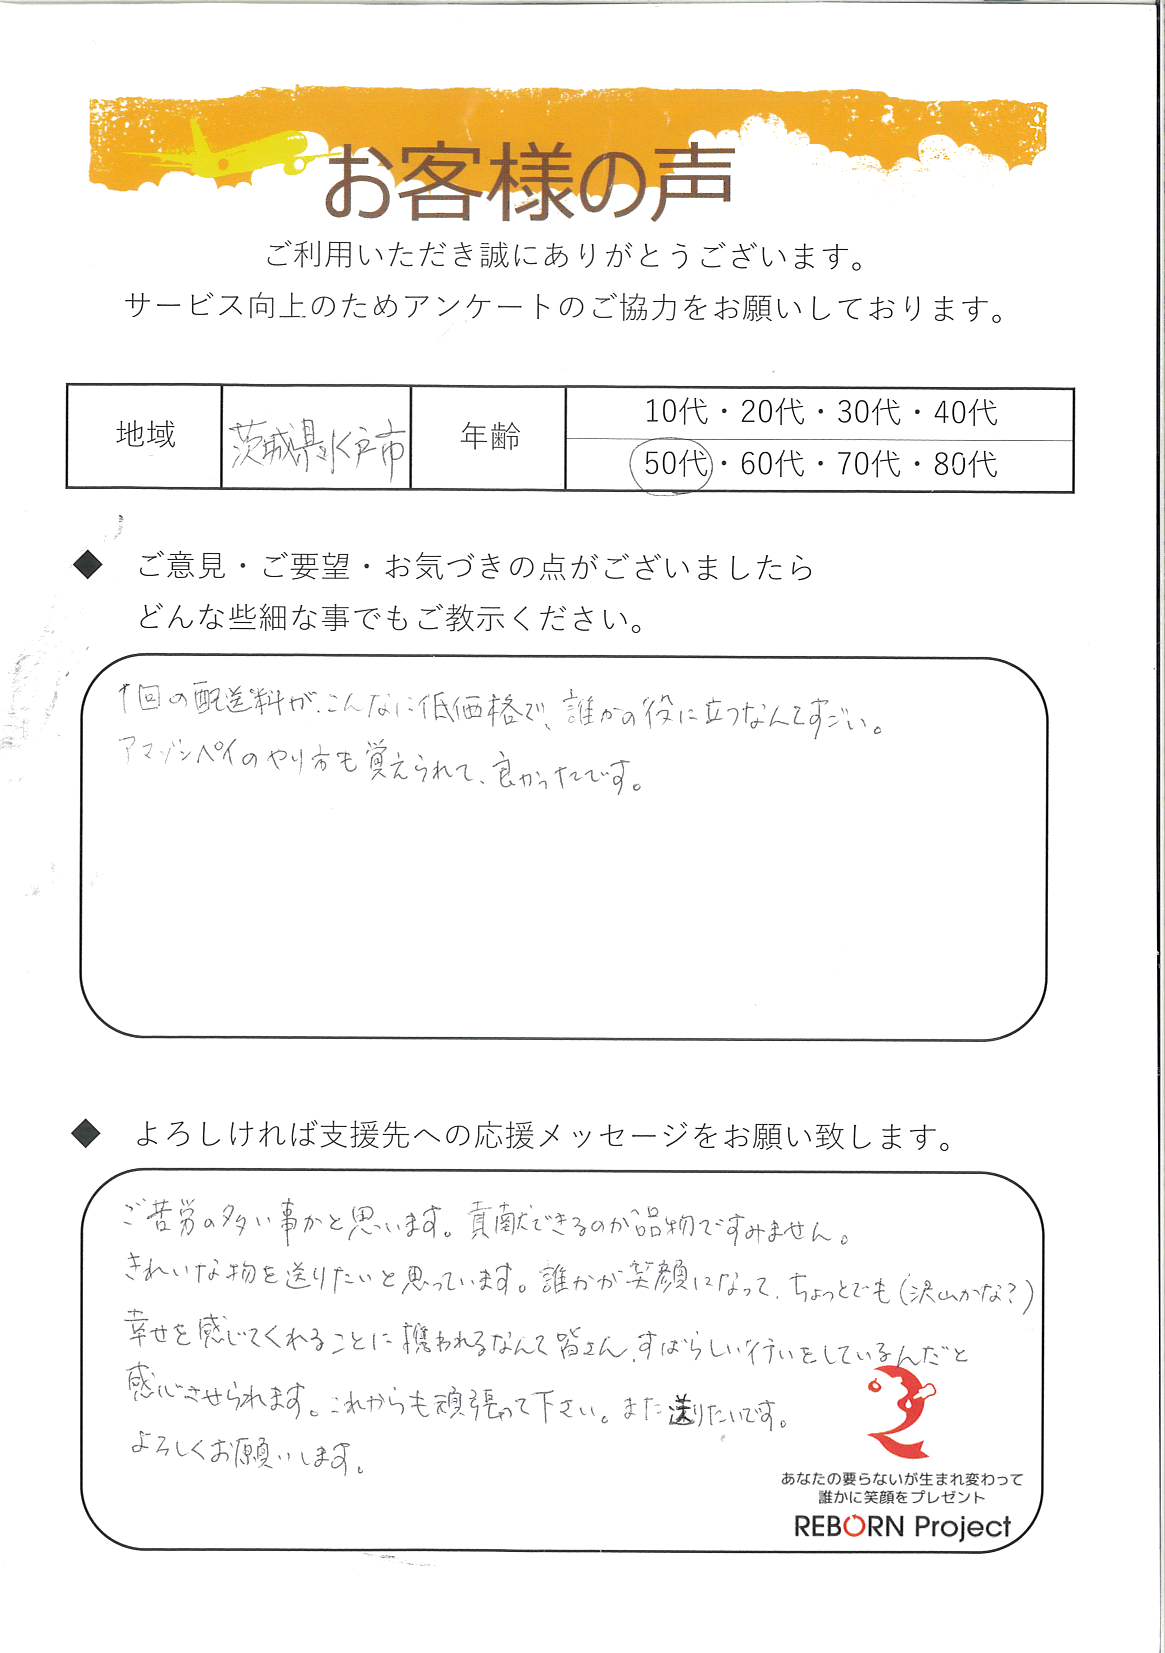 お客様の声
ご利用いただき誠にありがとうございます。
サービス向上のためアンケートのご協力をお願いしております。
地域 茨城県水戸市 年齢 10代・20代・30代・40代
50代・60代・70代・80代
◆ ご意見・ご要望・お気づきの点がございましたら
どんな些細な事でもご教示ください。
1回の配送料が、こんなに低価格で、誰かの役に立つなんてすごい。
アマゾンペイのやり方も覚えられて、良かったです。
◆ よろしければ支援先への応援メッセージをお願い致します。
ご苦労の多い事かと思います。貢献できるのが品物ですみません。
きれいな物を送りたいと思っています。誰かが笑顔になって、ちょっとでも(沢山かな?)
幸せを感じてくれることに携われるなんて皆さん、すばらしい行いをしているんだと
感心させられます。これからも頑張って下さい。また送りたいです。
よろしくお願いします。
あなたの要らないが生まれ変わって
誰かに笑顔をプレゼント
REBORN Project